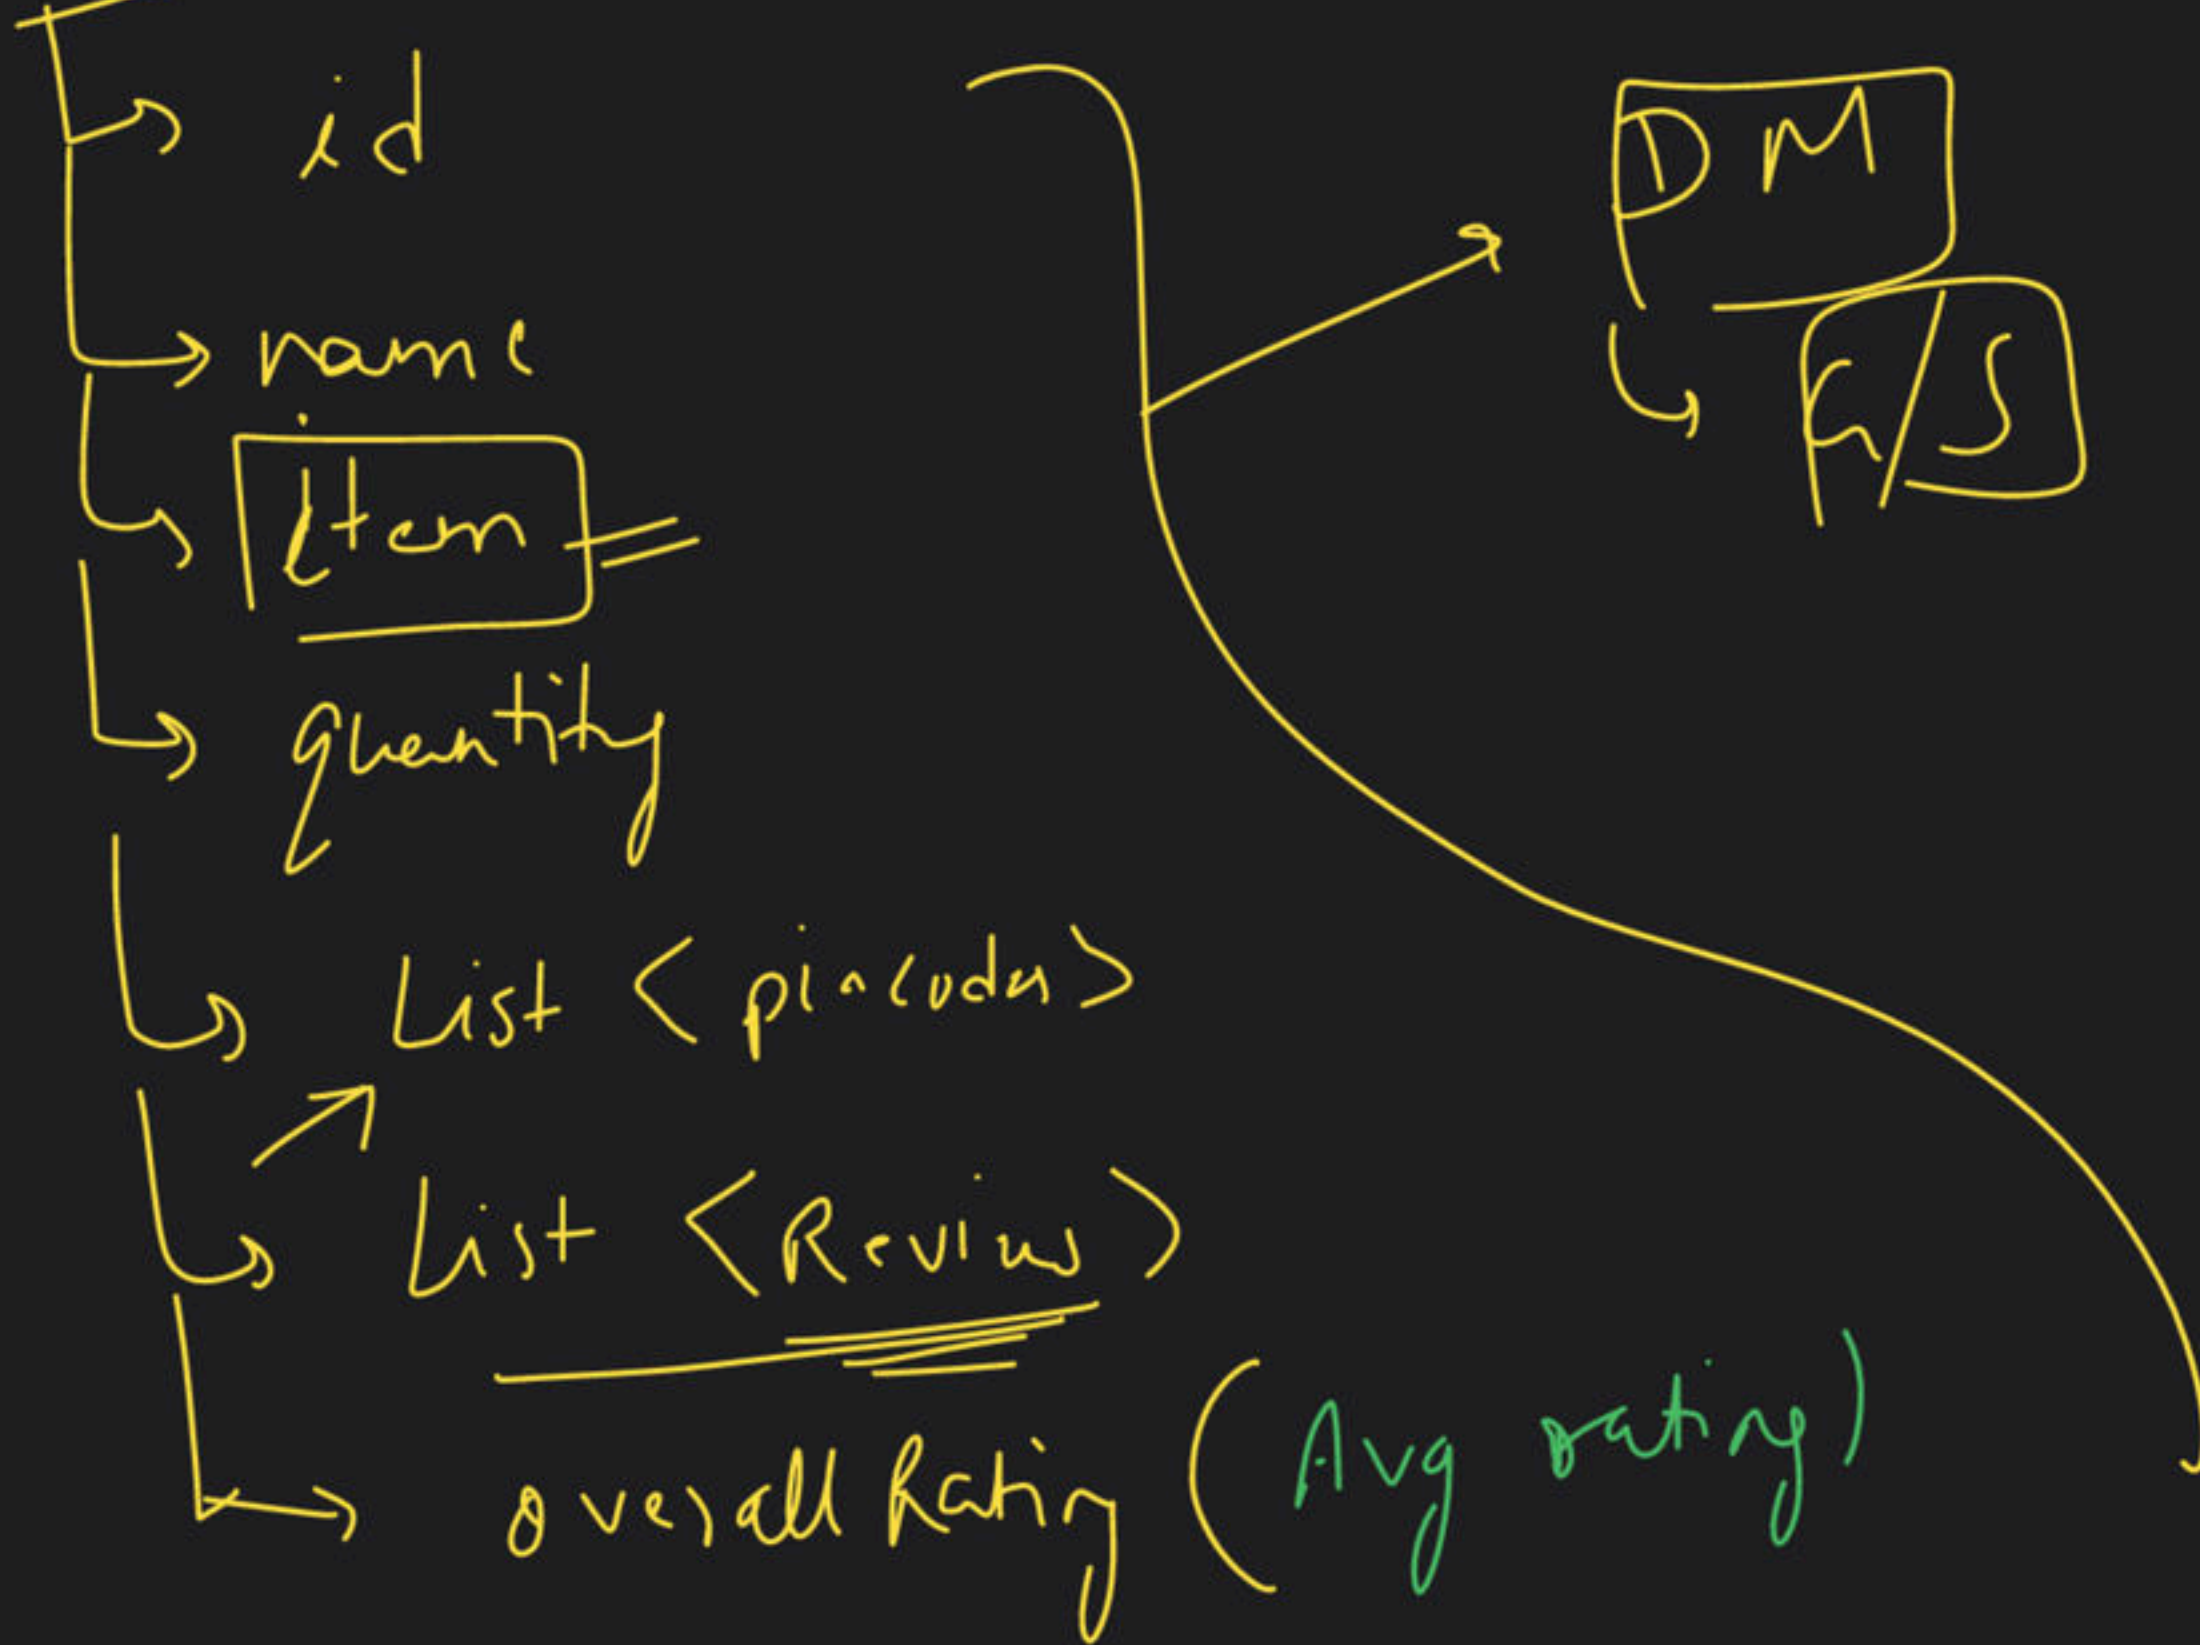 id
name
item
quantity
List <pincodes>
List <Reviews>
overall Rating (Avg rating)
DM
G/S